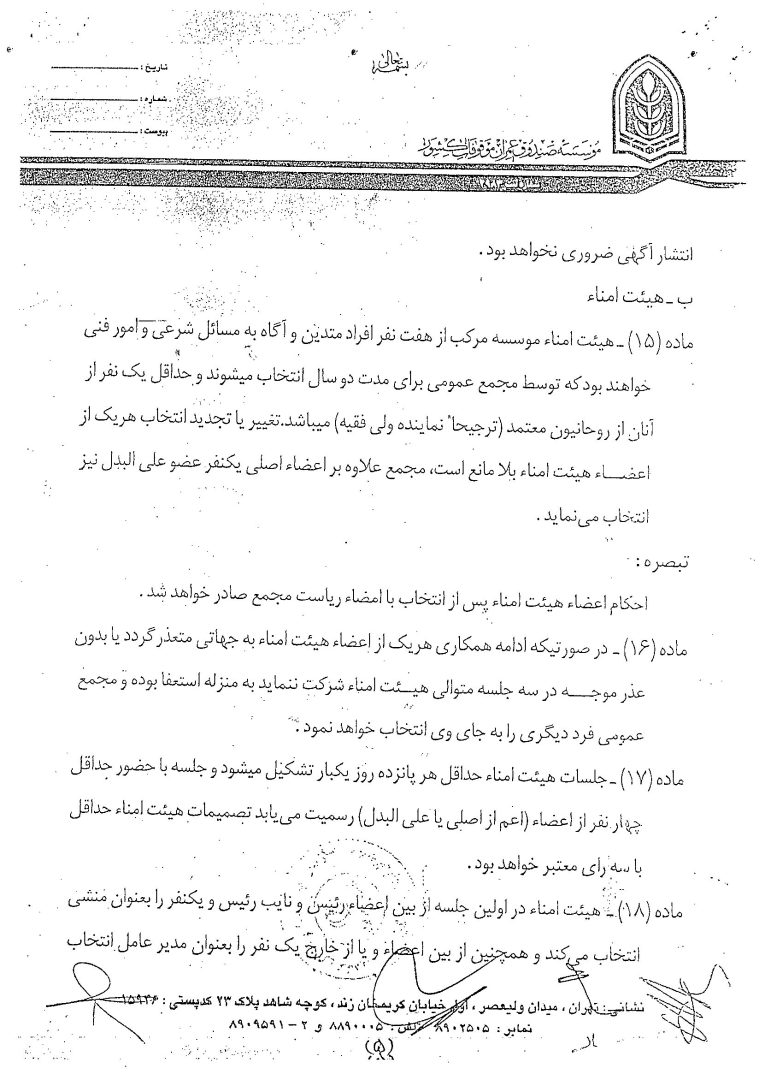 بسمه تعالی
تاریخ :
شماره :
پیوست :
موسسه صندوق عمران موقوفات کشور
انتشار آگهی ضروری نخواهد بود .
ب ـ هیئت امناء
ماده (۱۵) ـ هیئت امناء موسسه مرکب از هفت نفر افراد متدین و آگاه به مسائل شرعی و امور فنی
خواهند بود که توسط مجمع عمومی برای مدت دو سال انتخاب میشوند و حداقل یک نفر از
آنان از روحانیون معتمد (ترجیحاً نماینده ولی فقیه) میباشد.تغییر یا تجدید انتخاب هریک از
اعضـــاء هیئت امناء بلا مانع است، مجمع علاوه بر اعضاء اصلی یکنفر عضو علی البدل نیز
انتخاب می‌نماید .
تبصره :
احکام اعضاء هیئت امناء پس از انتخاب با امضاء ریاست مجمع صادر خواهد شد .
ماده (۱۶) ـ در صورتیکه ادامه همکاری هریک از اعضاء هیئت امناء به جهاتی متعذر گردد یا بدون
عذر موجـــه در سه جلسه متوالی هیــئت امناء شرکت ننماید به منزله استعفا بوده و مجمع
عمومی فرد دیگری را به جای وی انتخاب خواهد نمود .
ماده (۱۷) ـ جلسات هیئت امناء حداقل هر پانزده روز یکبار تشکیل میشود و جلسه با حضور حداقل
چهار نفر از اعضاء (اعم از اصلی یا علی البدل) رسمیت می‌یابد تصمیمات هیئت امناء حداقل
با سه رای معتبر خواهد بود .
ماده (۱۸) ـ هیئت امناء در اولین جلسه از بین اعضاء رئیس و نایب رئیس و یکنفر را بعنوان منشی
انتخاب می‌کند و همچنین از بین اعضاء و یا از خارج یک نفر را بعنوان مدیر عامل انتخاب
نشانی: تهران ، میدان ولیعصر ، اول خیابان کریمخان زند، کوچه شاهد پلاک ۲۳ کدپستی : ۱۵۹۳۶
نمابر : ۸۹۰۲۵۰۵ تلفن : ۸۸۹۰۰۰۵ و ۲ - ۸۹۰۹۵۹۱
(۵)